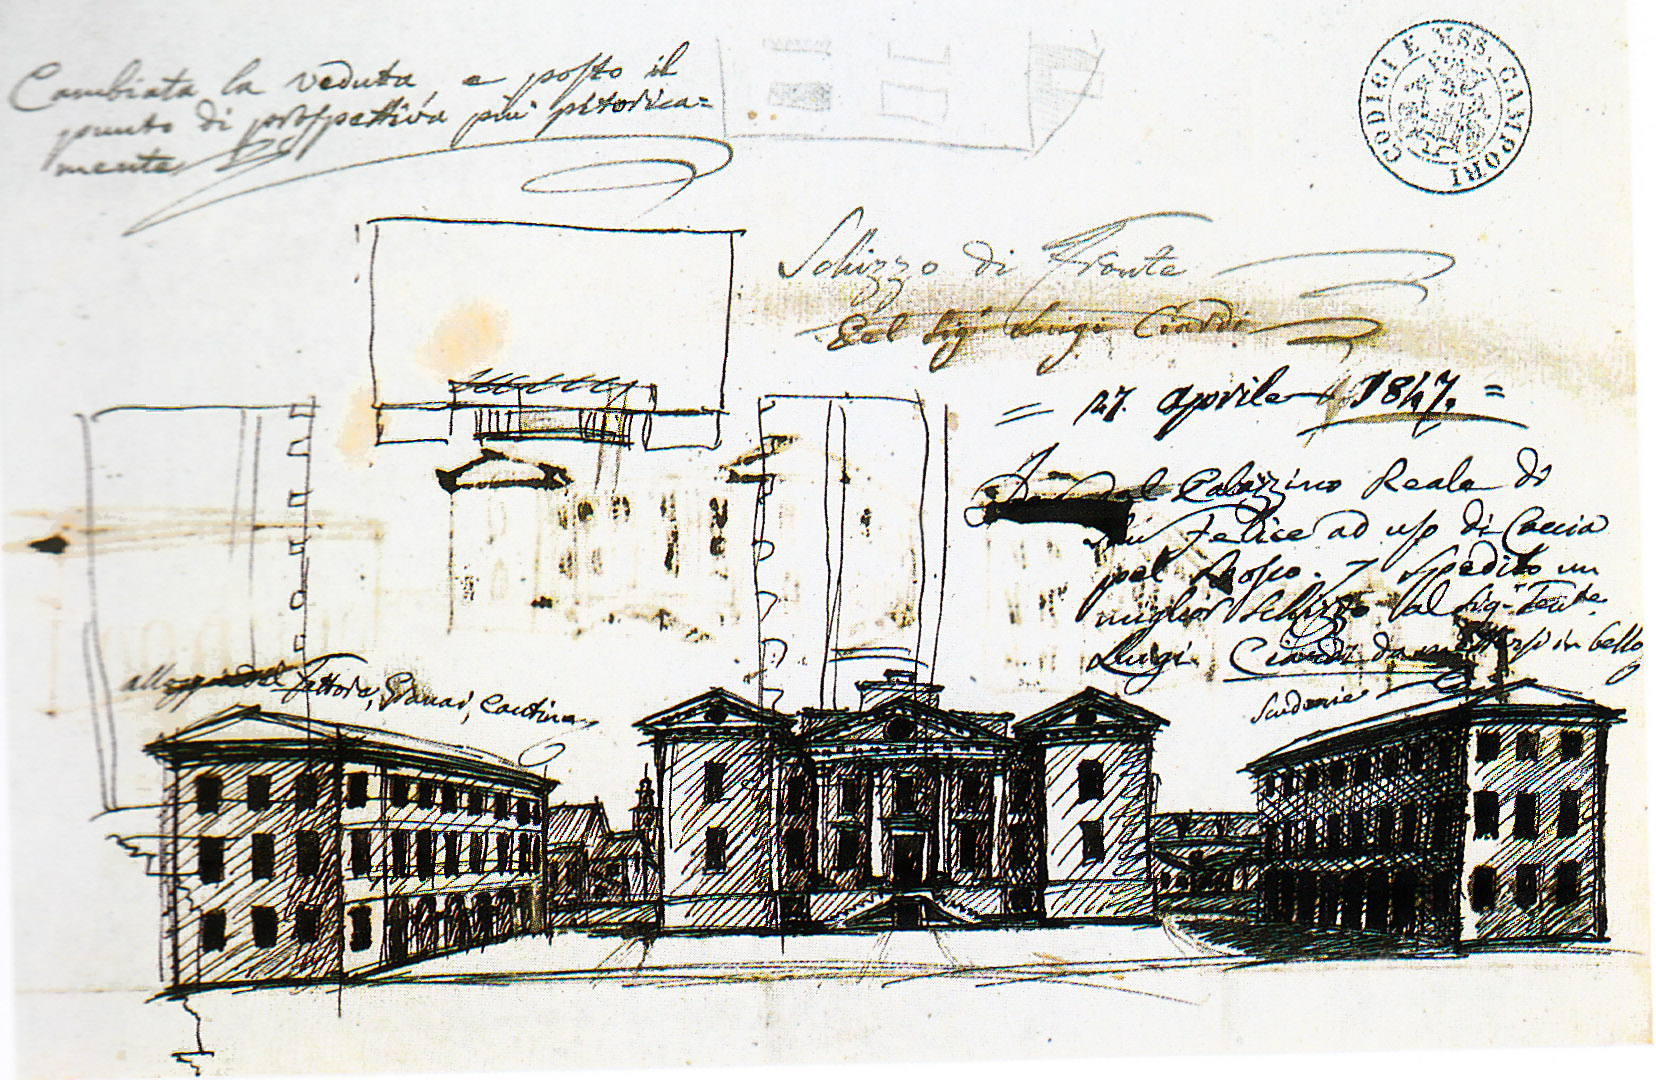 Cambiata la veduta e posto il
punto di prospettiva più pitorica=
mente
CODICI E MSS. CAMPORI
Schizzo di Fronte
Del Sig.r Luigi Ciardi
= 27. Aprile 1847. =
l Palazzino Reale di
San Felice ad uso di Caccia
pel Bosco. Spedito un
miglior Schizzo al Sig. Tente.
Luigi Ciardi da mettersi in bello
Fattoria, Granai, Cantina
Scuderie